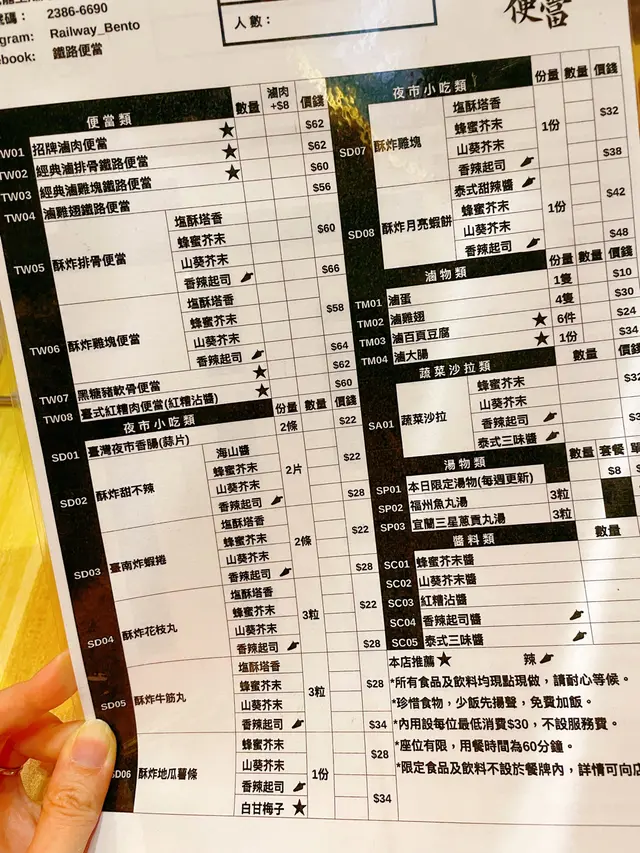 號碼： 2386-6690
gram: Railway_Bento
ebook: 鐵路便當
人數：
便當
便當類 數量 滷肉+$8 價錢
TW01 招牌滷肉便當 ★ $62
TW02 經典滷排骨鐵路便當 ★ $62
TW03 經典滷雞塊鐵路便當 ★ $60
TW04 滷雞翅鐵路便當 $56
TW05 酥炸排骨便當
塩酥塔香
蜂蜜芥末
山葵芥末
$60
香辣起司 $66
TW06 酥炸雞塊便當
塩酥塔香
蜂蜜芥末
山葵芥末
$58
香辣起司 $64
TW07 黑糖豬軟骨便當 ★ $62
TW08 臺式紅糟肉便當(紅糟沾醬) ★ $60
夜市小吃類 份量 數量 價錢
SD01 臺灣夜市香腸(蒜片) 2條 $22
SD02 酥炸甜不辣 2片
海山醬
蜂蜜芥末
山葵芥末
$22
香辣起司 $28
SD03 臺南炸蝦捲 2條
塩酥塔香
蜂蜜芥末
山葵芥末
$22
香辣起司 $28
SD04 酥炸花枝丸 3粒
塩酥塔香
蜂蜜芥末
山葵芥末
$22
香辣起司 $28
SD05 酥炸牛筋丸 3粒
塩酥塔香
蜂蜜芥末
山葵芥末
$28
香辣起司 $34
SD06 酥炸地瓜薯條 1份
蜂蜜芥末
山葵芥末
$28
香辣起司
白甘梅子 ★
$34
夜市小吃類 份量 數量 價錢
SD07 酥炸雞塊 1份
塩酥塔香
蜂蜜芥末
山葵芥末
$32
香辣起司 $38
SD08 酥炸月亮蝦餅 1份
泰式甜辣醬
蜂蜜芥末
山葵芥末
$42
香辣起司 $48
滷物類 份量 數量 價錢
TM01 滷蛋 1隻 $10
TM02 滷雞翅 4隻 $30
TM03 滷百頁豆腐 6件 ★ $24
TM04 滷大腸 1份 ★ $34
蔬菜沙拉類 數量 價錢
SA01 蔬菜沙拉
蜂蜜芥末
山葵芥末
香辣起司
泰式三味醬
湯物類 數量 套餐
SP01 本日限定湯物(每週更新) $8
SP02 福州魚丸湯 3粒
SP03 宜蘭三星蔥貢丸湯 3粒
醬料類 數量
SC01 蜂蜜芥末醬
SC02 山葵芥末醬
SC03 紅糟沾醬
SC04 香辣起司醬
SC05 泰式三味醬
本店推薦★ 辣
*所有食品及飲料均現點現做，請耐心等候。
*珍惜食物，少飯先揚聲，免費加飯。
*內用設每位最低消費$30，不設服務費。
*座位有限，用餐時間為60分鐘。
*限定食品及飲料不設於餐牌內，詳情可向店